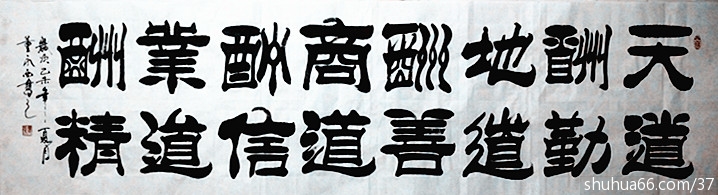 天道
酬勤
地道
酬善
商道
酬信
業道
酬精
歲次乙未年夏月
shuhua66.com/37